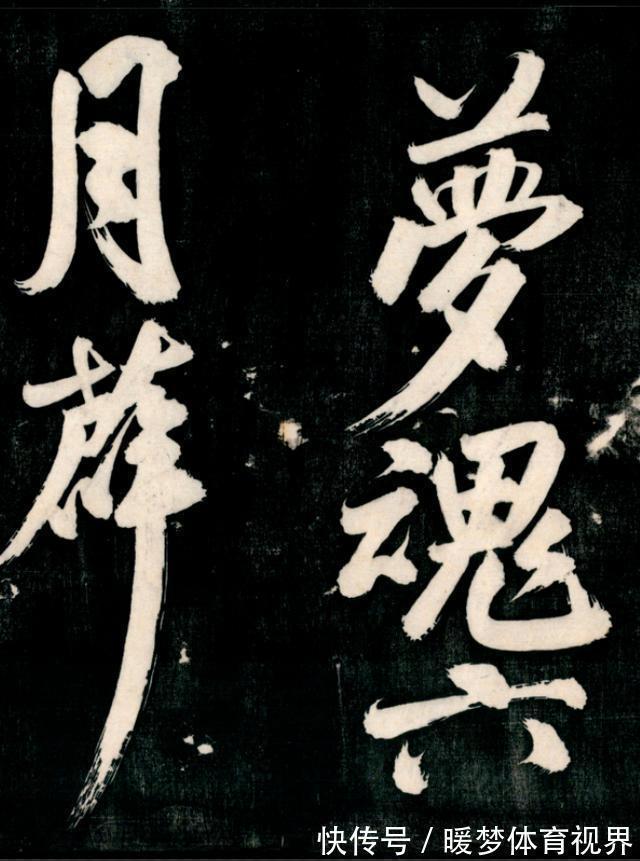 夢魂六
月薜
快传号 / 暖梦体育视界